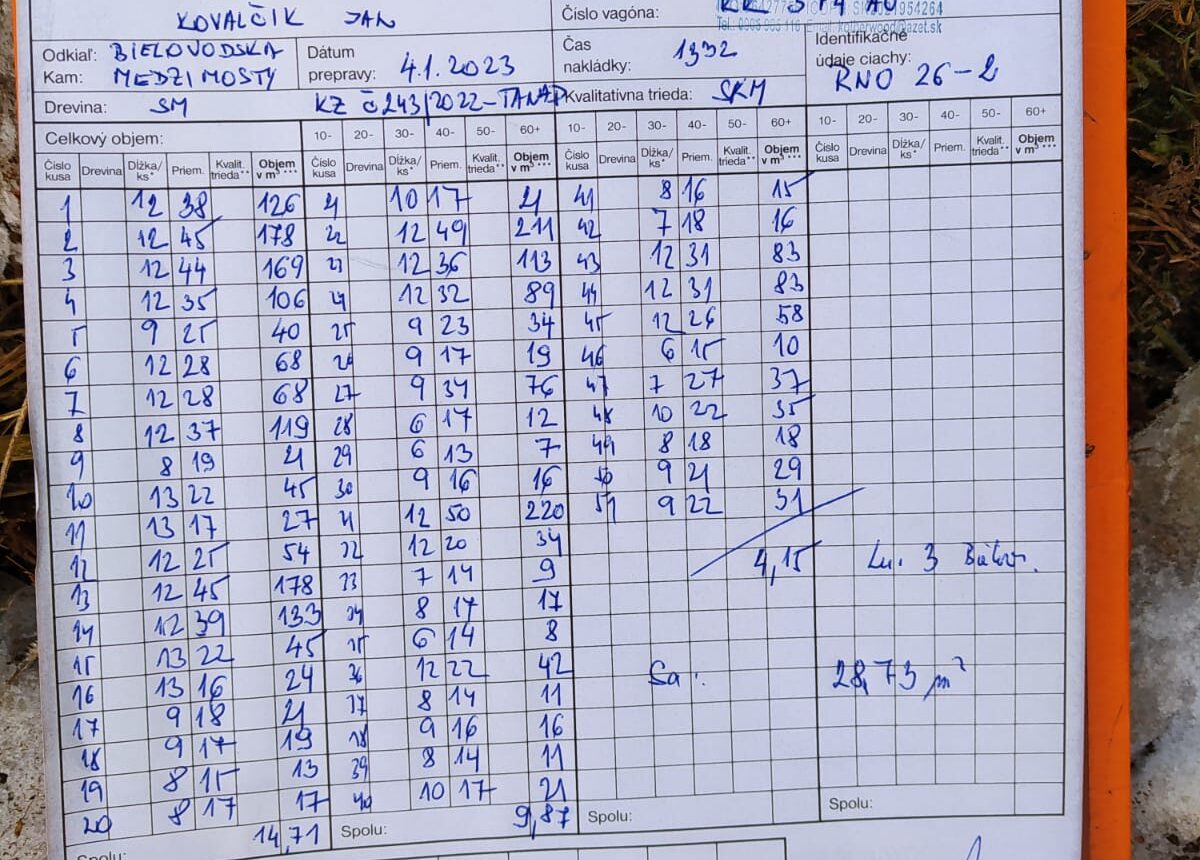 KOVALČIK JAN
Číslo vagóna: KK 514 AU
Odkiaľ: BIELOVODSKA
Kam: MEDZIMOSTY
Dátum prepravy: 4.1.2023
Čas nakládky: 1332
Identifikačné údaje ciachy: RNO 26-2
Drevina: SM KZ č 243/2022-TANAP Kvalitatívna trieda: SKM
Celkový objem: 10- 20- 30- 40- 50- 60+ 10- 20- 30- 40- 50- 60+ 10- 20- 30- 40- 50- 60+
Číslo kusa Drevina Dĺžka/ks* Priem. Kvalit. trieda** Objem v m³*** Číslo kusa Drevina Dĺžka/ks* Priem. Kvalit. trieda** Objem v m³*** Číslo kusa Drevina Dĺžka/ks* Priem. Kvalit. trieda** Objem v m³*** Číslo kusa Drevina Dĺžka/ks* Priem. Kvalit. trieda** Objem v m³***
1 12 38 126 21 10 17 21 41 8 16 15
2 12 45 178 22 12 49 211 42 7 18 16
3 12 44 169 23 12 36 113 43 12 31 83
4 12 35 106 24 12 32 89 44 12 31 83
5 9 25 40 25 9 23 34 45 12 26 58
6 12 28 68 26 9 17 19 46 6 15 10
7 12 28 68 27 9 34 76 47 7 27 37
8 12 37 119 28 6 17 12 48 10 22 35
9 8 19 21 29 6 13 7 49 8 18 18
10 13 22 45 30 9 16 16 50 9 21 29
11 13 17 27 31 12 50 220 51 9 22 31
12 12 25 54 32 12 20 34 4,15
13 12 45 178 33 7 14 9
14 12 39 133 34 8 17 17
15 13 22 45 35 6 14 8
16 13 16 24 36 12 22 42 Sa: 28,73 m³
17 9 18 21 37 8 14 11
18 9 17 19 38 9 16 16
19 8 15 13 39 8 14 11
20 8 17 17 40 10 17 21
Spolu: 14,71 Spolu: 9,87 Spolu: Spolu: